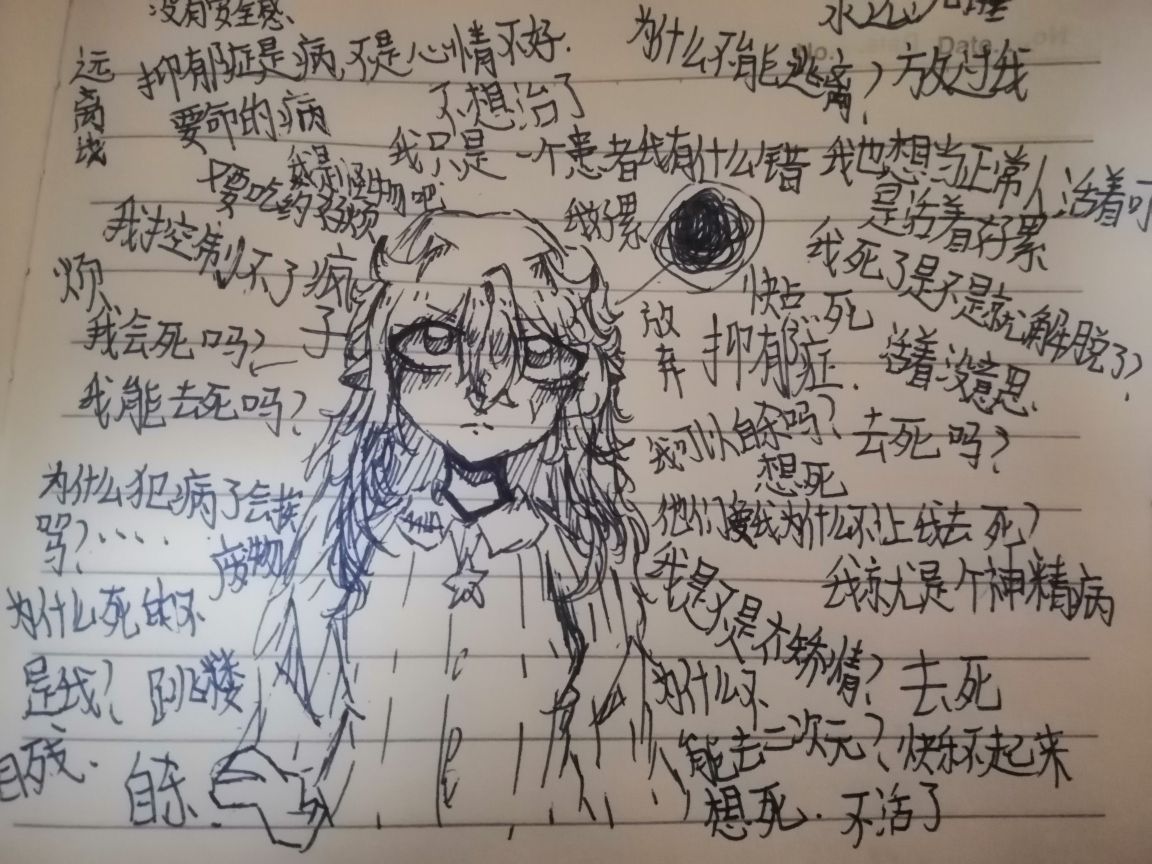 没有安全感
永远
No. Date.
为什么不能逃离？放过我
抑郁症是病，不是心情不好.
远离我
要命的病
不想治了
我只是一个患者我有什么错
我也想当正常人活着可
是活着好累
我是怪物吧
要吃药好烦
我好累
我控制不了疯子
烦
我死了是不是就解脱了？
快点死
我会死吗？
放弃
抑郁症.
活着没意思.
我能去死吗？
我可以自杀吗？
去死吗？
想死
为什么犯病了会挨
骂？....
他们要我为什么不让我去死？
废物
我是不是在矫情？
我就是个神精病
为什么死的不
是我？
跳楼
为什么不
能去二次元？
去死
快乐不起来
自残.
自杀
想死.不活了